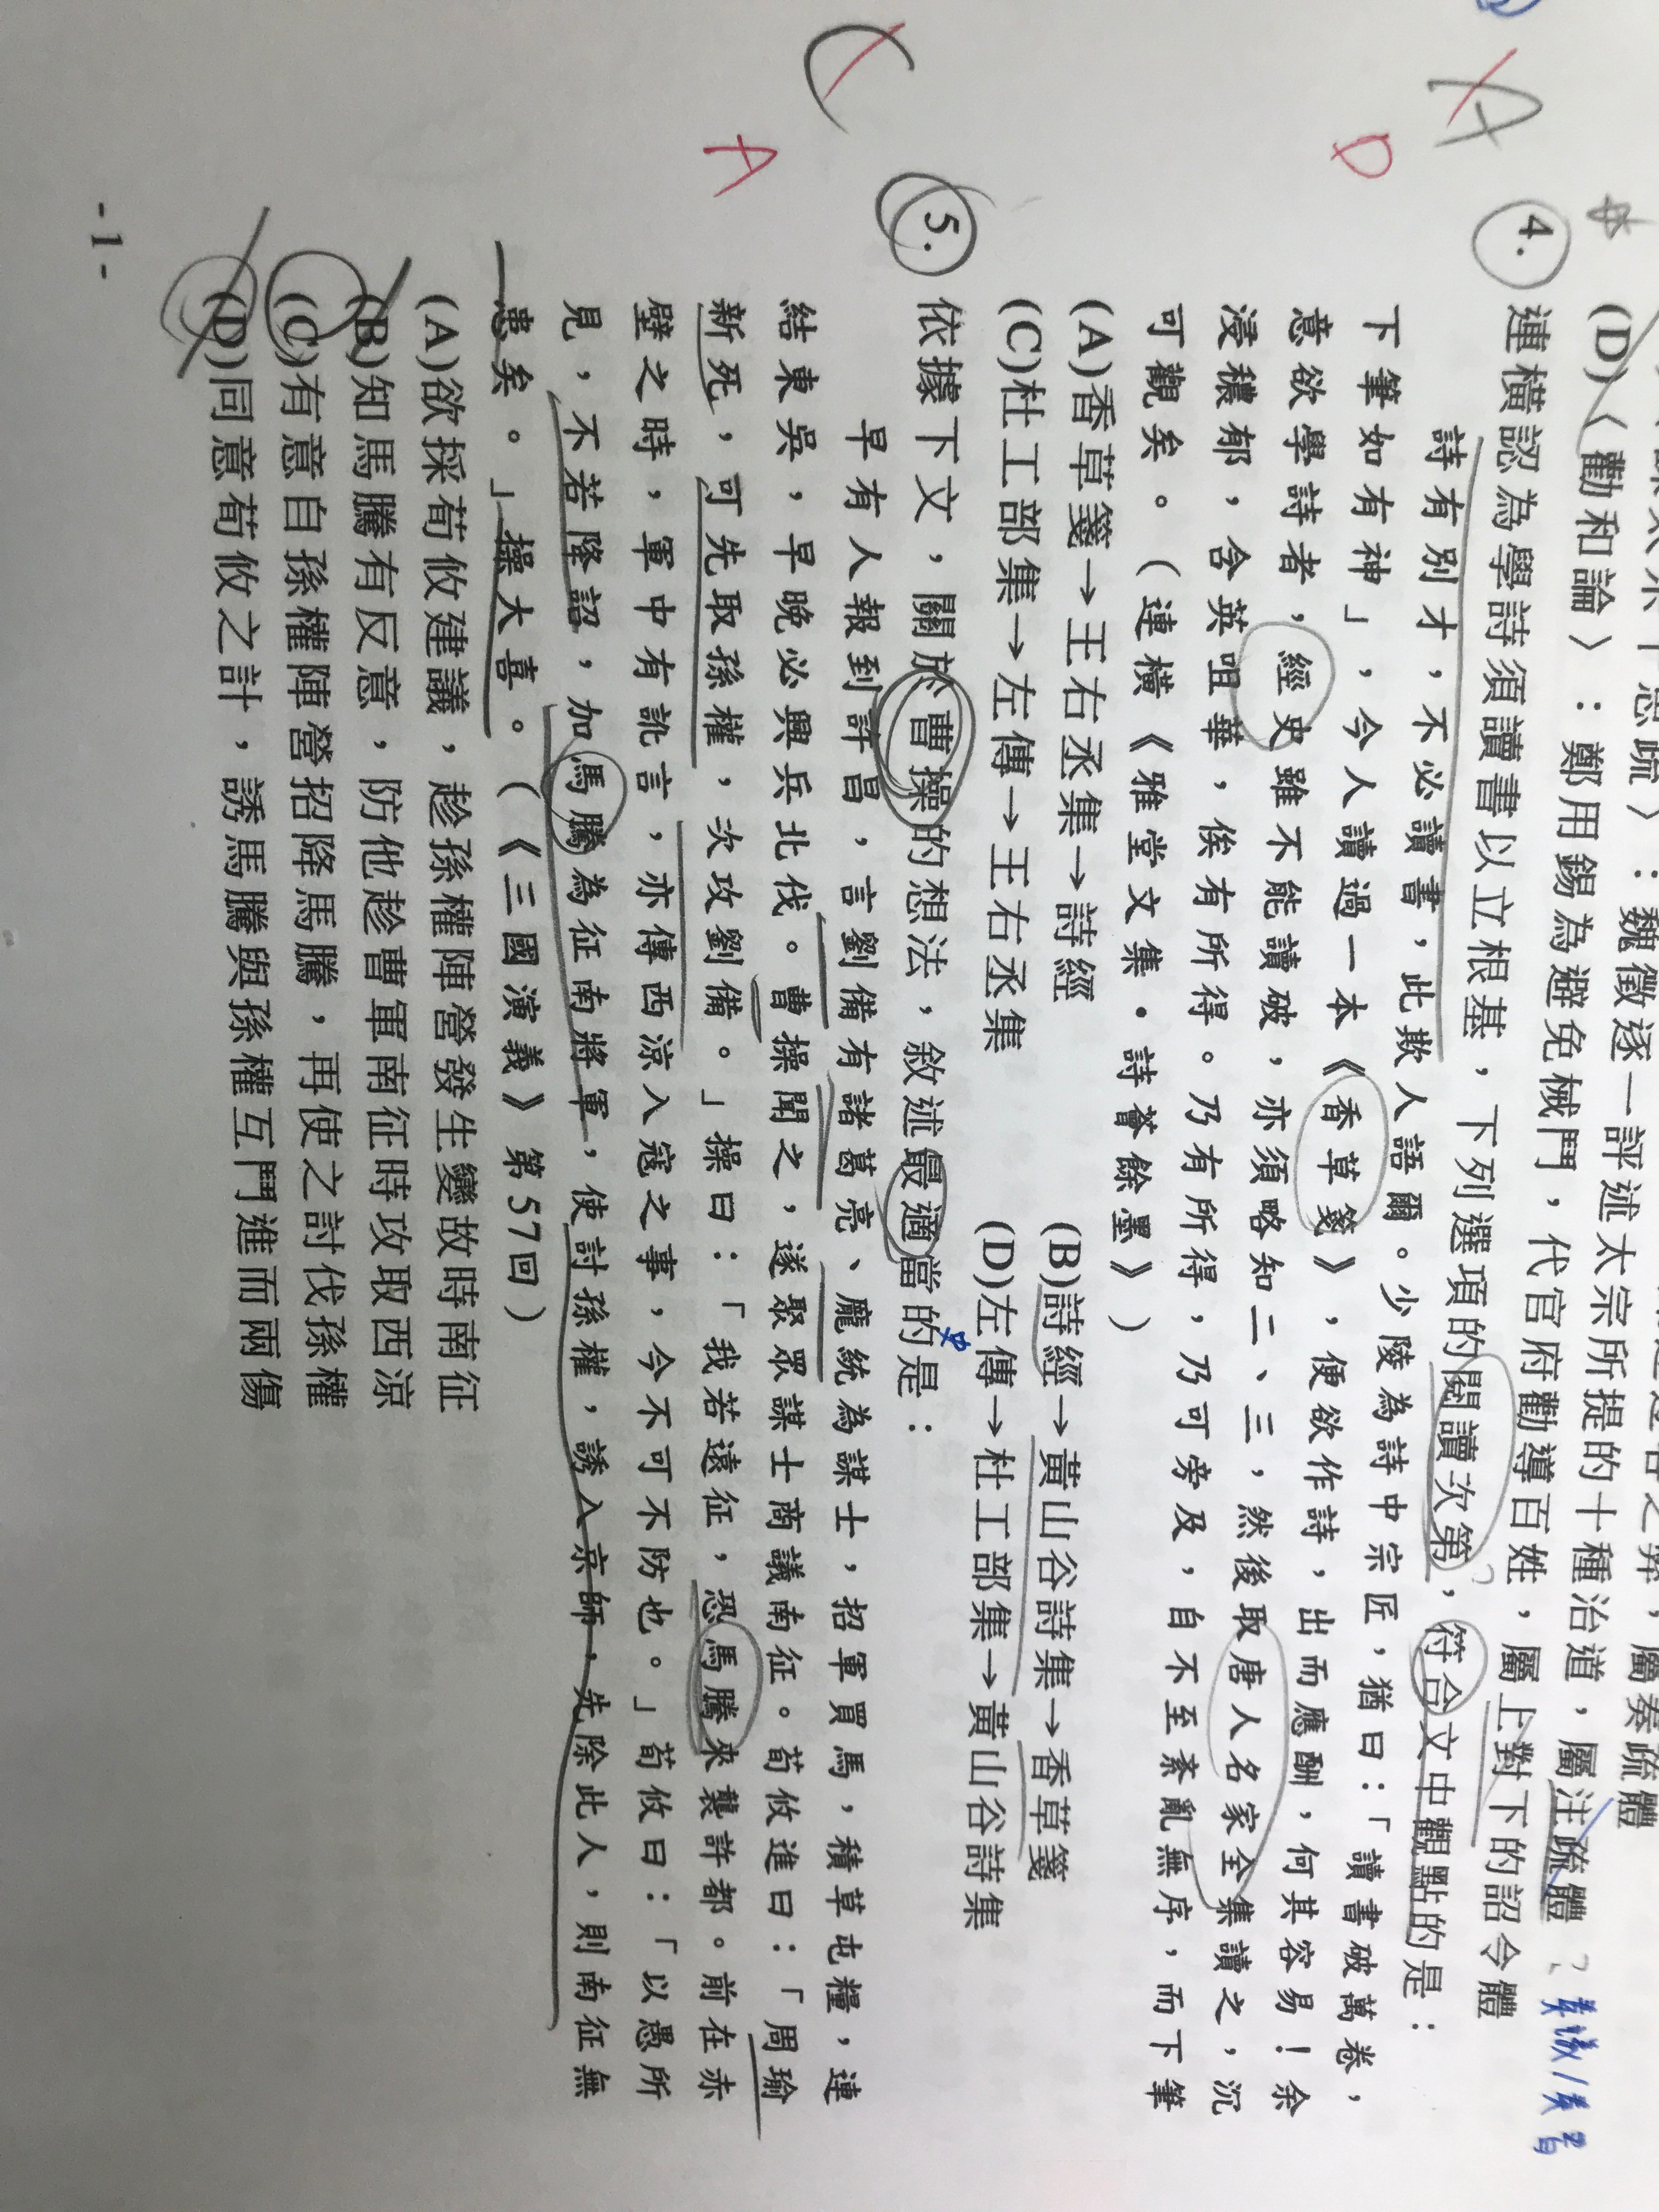 (D)〈勸和論〉：鄭用錫為避免械鬥，代官府勸導百姓，屬上對下的詔令體
4. 連橫認為學詩須讀書以立根基，下列選項的閱讀次第，符合文中觀點的是：
詩有別才，不必讀書，此欺人語爾。少陵為詩中宗匠，猶曰：「讀書破萬卷，
下筆如有神」，今人讀過一本《香草箋》，便欲作詩，出而應酬，何其容易！余
意欲學詩者，經史雖不能讀破，亦須略知二、三，然後取唐人名家全集讀之，沉
浸穠郁，含英咀華，俟有所得。乃有所得，乃可旁及，自不至紊亂無序，而下筆
可觀矣。（連橫《雅堂文集·詩薈餘墨》）
(A)香草箋→王右丞集→詩經
(B)詩經→黃山谷詩集→香草箋
(C)杜工部集→左傳→王右丞集
(D)左傳→杜工部集→黃山谷詩集
史
5. 依據下文，關於曹操的想法，敘述最適當的是：
早有人報到許昌，言劉備有諸葛亮、龐統為謀士，招軍買馬，積草屯糧，連
結東吳，早晚必興兵北伐。曹操聞之，遂聚眾謀士商議南征。荀攸進曰：「周瑜
新死，可先取孫權，次攻劉備。」操曰：「我若遠征，恐馬騰來襲許都。前在赤
壁之時，軍中有訛言，亦傳西涼入寇之事，今不可不防也。」荀攸曰：「以愚所
見，不若降詔，加馬騰為征南將軍，使討孫權，誘入京師，先除此人，則南征無
患矣。」操大喜。（《三國演義》第57回）
(A)欲採荀攸建議，趁孫權陣營發生變故時南征
(B)知馬騰有反意，防他趁曹軍南征時攻取西涼
(C)有意自孫權陣營招降馬騰，再使之討伐孫權
(D)同意荀攸之計，誘馬騰與孫權互鬥進而兩傷
- 1 -
A
D
C
A